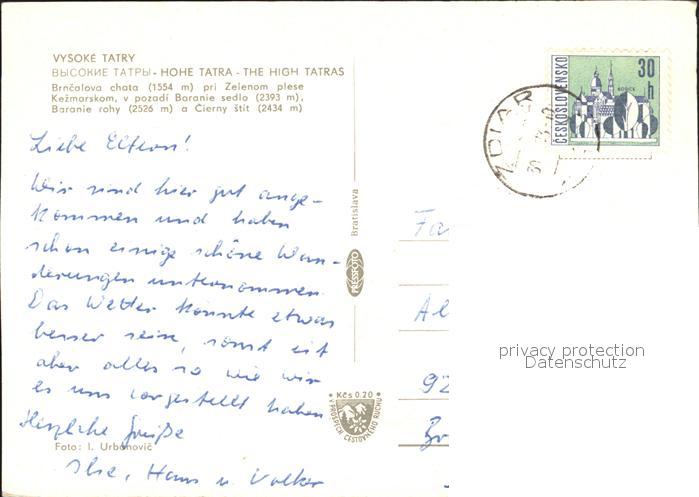 VYSOKÉ TATRY
ВЫСОКИЕ ТАТРЫ - HOHE TATRA - THE HIGH TATRAS
Brnčalova chata (1554 m) pri Zelenom plese
Kežmarskom, v pozadí Baranie sedlo (2393 m),
Baranie rohy (2526 m) a Čierny štít (2434 m)
Liebe Eltern!
Wir sind hier gut ange-
kommen und haben
schon einige schöne Wan-
derungen unternommen.
Das Wetter könnte etwas
besser sein, sonst ist
aber alles so wie wir
es uns vorgestellt haben
Herzliche Grüße
Foto: I. Urbanovič
Ilse, Hans u. Volker
Bratislava
PRESSFOTO
Kčs 0.20
V PROSPECH CESTOVNÉHO RUCHU
ČESKOSLOVENSKO
30 h
KOŠICE
ŽDIAR
Fa
Al
92
privacy protection
Datenschutz